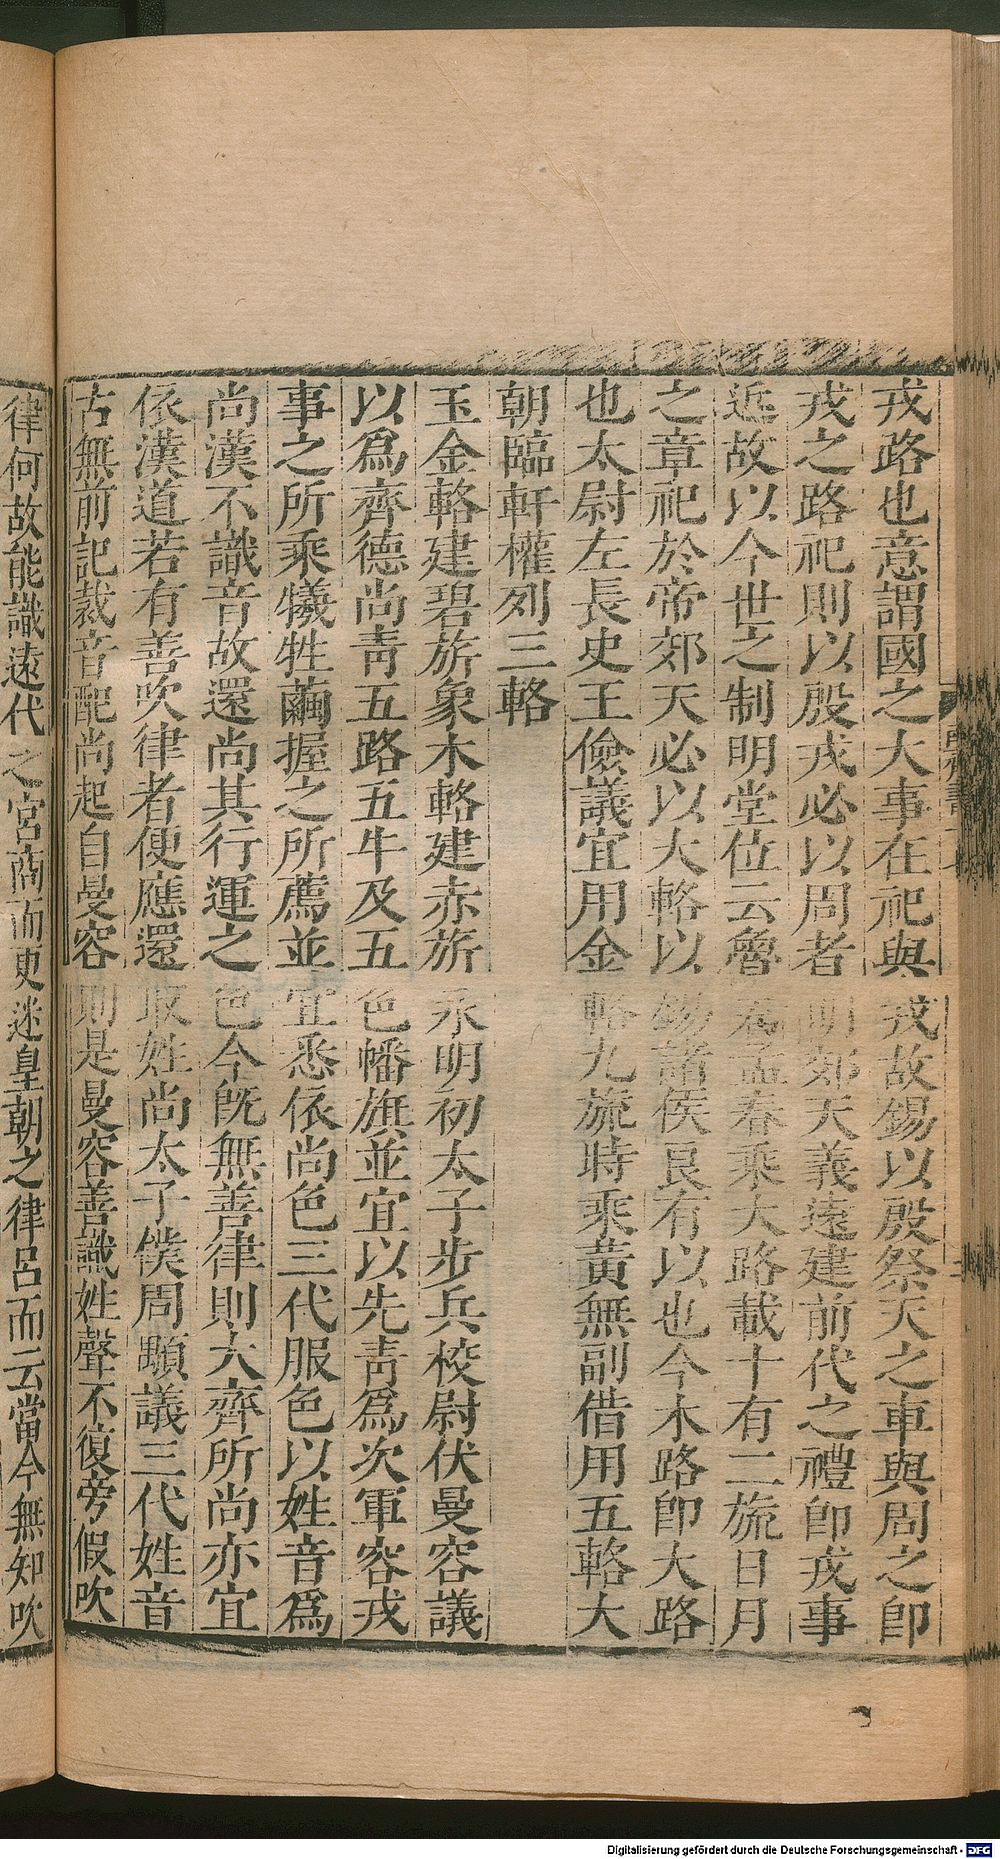 戎路也意謂國之大事在祀與戎故錫以殷祭天之車與周之卽
戎之路祀則以殷戎必以周者明郊天義遠建前代之禮卽戎事
近故以今世之制明堂位云魯君孟春乘大路載十有二旒日月
之章祀於帝郊天必以大輅以錫諸侯良有以也今木路卽大路
也太尉左長史王儉議宜用金輅九旒時乘黃無副借用五輅大
朝臨軒權列三輅
玉金輅建碧旂象木輅建赤旂永明初太子步兵校尉伏曼容議
以爲齊德尚靑五路五牛及五色幡旗並宜以先靑爲次軍容戎
事之所乘犧牲繭握之所薦並宜悉依尚色三代服色以姓音爲
尚漢不識音故還尚其行運之色今旣無善律則大齊所尚亦宜
依漢道若有善吹律者便應還取姓尚太子僕周顒議三代姓音
古無前記裁音配尚起自曼容則是曼容善識姓聲不復旁假吹
律何故能識遠代之宮商而更迷皇朝之律呂而云當今無知吹
Digitalisierung gefördert durch die Deutsche Forschungsgemeinschaft - DFG